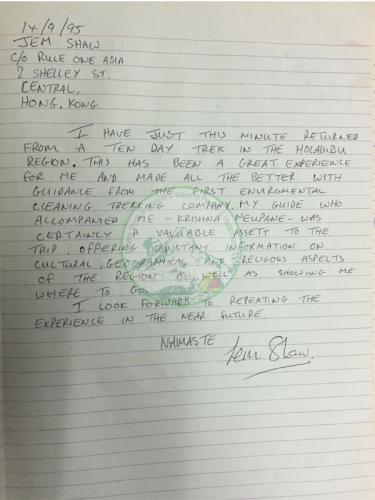 14/9/95
JEM SHAW
C/O RULE ONE ASIA
2 SHELLEY ST.
CENTRAL,
HONG, KONG
I HAVE JUST THIS MINUTE RETURNED
FROM A TEN DAY TREK IN THE HOLAMBU
REGION. THIS HAS BEEN A GREAT EXPERIENCE
FOR ME AND MADE ALL THE BETTER WITH
GUIDANCE FROM THE FIRST ENVIROMENTAL
CLEANING TREKKING COMPANY. MY GUIDE WHO
ACCOMPANIED ME - KRISHNA NEUPANE - WAS
CERTAINLY A VALUABLE ASSETT TO THE
TRIP, OFFERING CONSTANT INFORMATION ON
CULTURAL, GEOGRAPHICAL AND RELIGOUS ASPECTS
OF THE REGION AS WELL AS SHOWING ME
WHERE TO GO.
I LOOK FORWARD TO REPEATING THE
EXPERIENCE IN THE NEAR FUTURE.
NAMASTE
Jem Shaw.